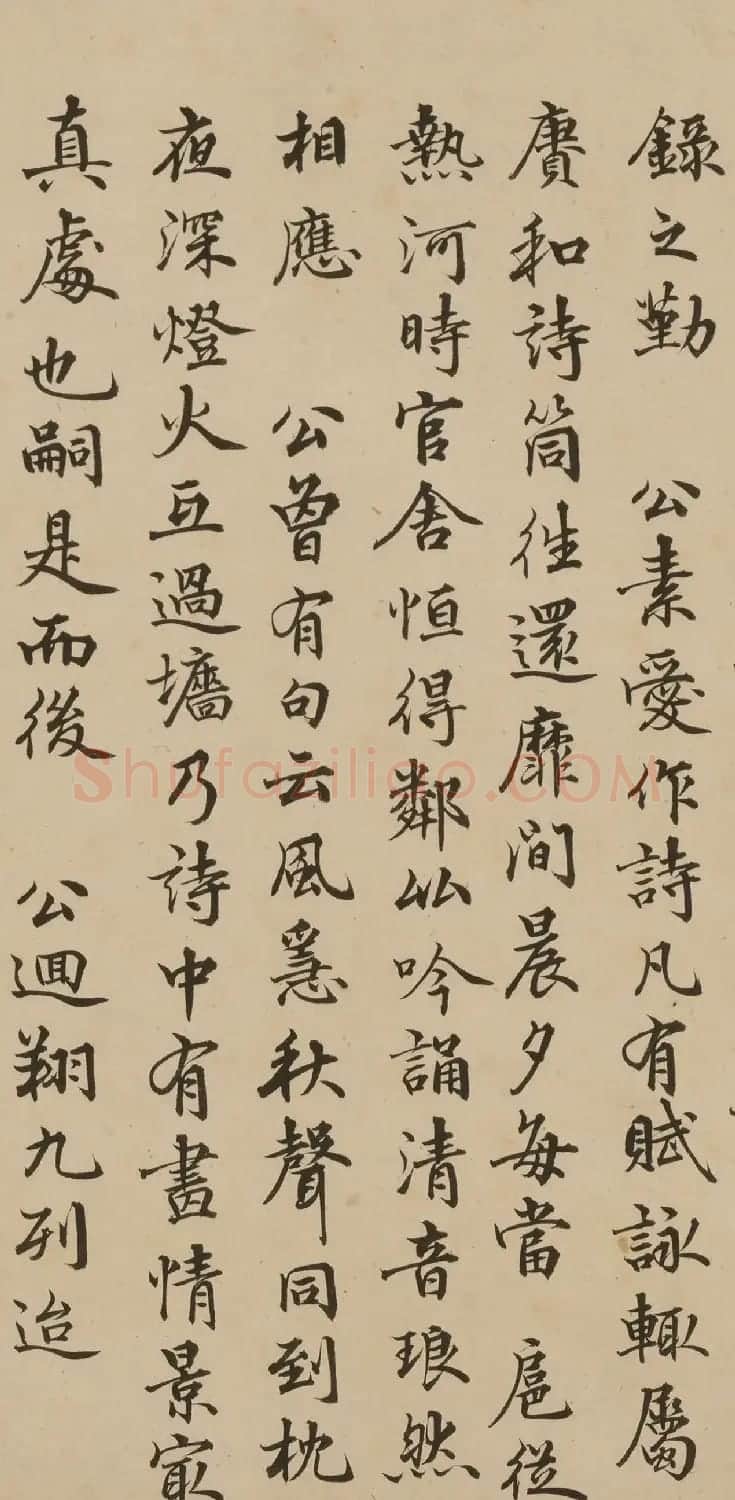 錄之勤 公素愛作詩凡有賦詠輒屬
賡和詩筒往還靡間晨夕每當 扈從
熱河時官舍恒得鄰比吟誦清音琅然
相應 公曾有句云風急秋聲同到枕
夜深燈火互過墻乃詩中有畫情景寂
真處也嗣是而後 公迴翔九列迨
Shufaziliao.COM